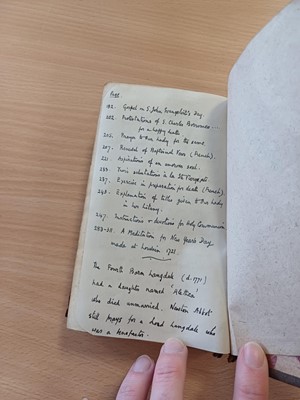 Page
182. Gospel on S. John Evangelist's Day
202. Protestations of S. Charles Borromeo
for a happy death.
205. Prayer to Our Lady for the same
207. Renewal of Baptismal Vows (French).
221. Aspirations of an anxious soul.
233. Pious salutations à la Ste Vierge
237. Exercise in preparation for death (French)
243. Explanation of titles given to Our Lady
in her litany.
247. Instructions & devotions for Holy Communion
A Meditation for New Year's Day
made at Louvain 1721.
The Fourth Baron Langdale (d. 1777)
had a daughter named 'Alethea'
who died unmarried. Newton Abbot
still prays for a Lord Langdale who
was a benefactor.